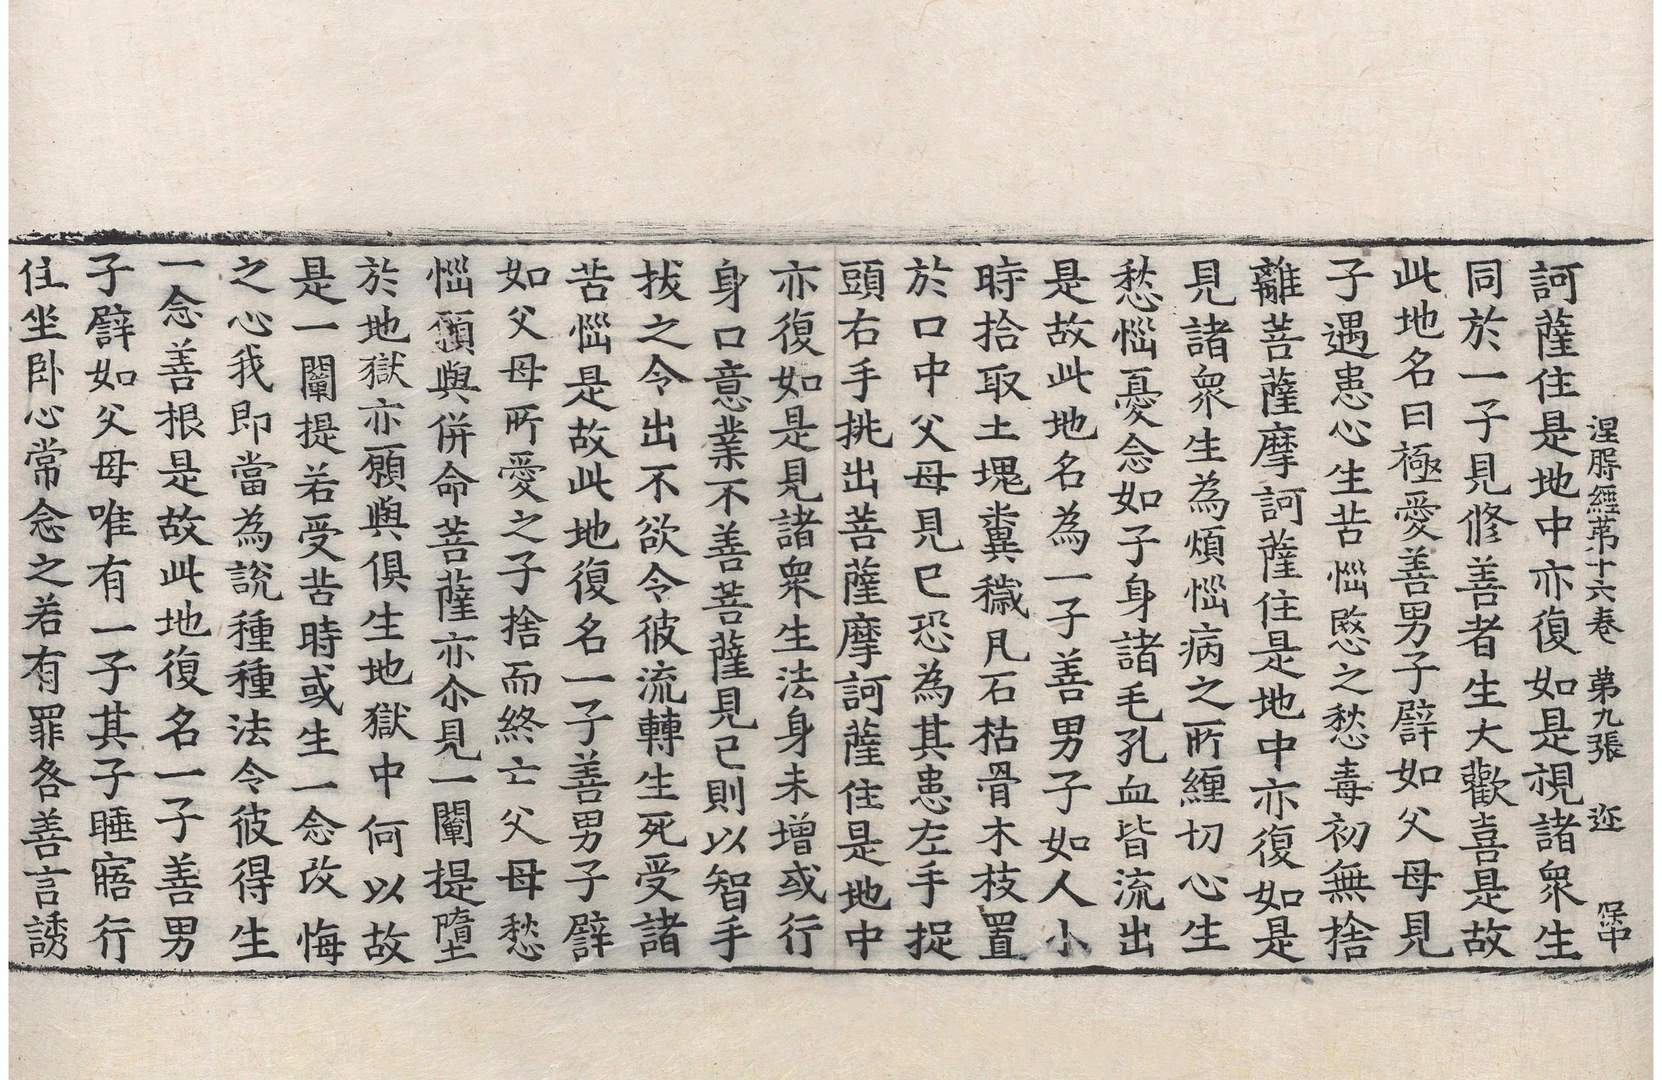 涅槃經第十六卷　第九張　迩
訶薩住是地中亦復如是視諸衆生
同於一子見修善者生大歡喜是故
此地名曰極愛善男子譬如父母見
子遇患心生苦惱愍之愁毒初無捨
離菩薩摩訶薩住是地中亦復如是
見諸衆生為煩惱病之所纏切心生
愁惱憂念如子身諸毛孔血皆流出
是故此地名為一子善男子如人小
時拾取土塊糞穢瓦石枯骨木枝置
於口中父母見已恐為其患左手捉
頭右手挑出菩薩摩訶薩住是地中
亦復如是見諸衆生法身未增或行
身口意業不善菩薩見已則以智手
拔之令出不欲令彼流轉生死受諸
苦惱是故此地復名一子善男子譬
如父母所愛之子捨而終亡父母愁
惱願與併命菩薩亦尒見一闡提墮
於地獄亦願與俱生地獄中何以故
是一闡提若受苦時或生一念改悔
之心我即當為說種種法令彼得生
一念善根是故此地復名一子善男
子譬如父母唯有一子其子睡寤行
住坐卧心常念之若有罪咎善言誘